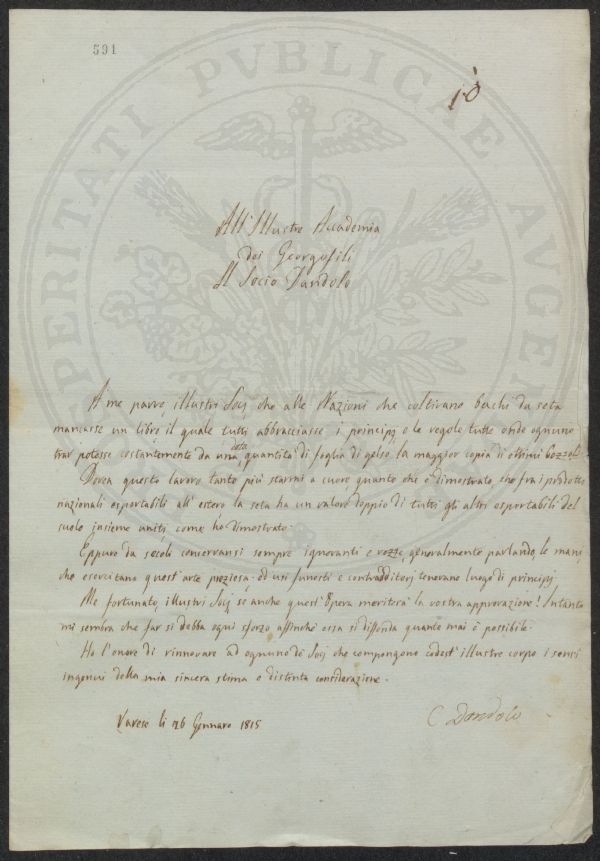 591
10
All'Illustre Accademia
dei Georgofili
Il Socio Dandolo
A me parve, illustri Socj che alle Nazioni che coltivano bachi da seta
mancasse un libro il quale tutti abbracciasse i principj e le regole tutte onde ognuno
trar potesse costantemente da una data quantità di foglia di gelso la maggior copia di ottimi bozzoli.
Dovea questo lavoro tanto più starmi a cuore quanto che è dimostrato che fra i prodotti
nazionali esportabili all'estero la seta ha un valore doppio di tutti gli altri esportabili del
suolo insieme uniti, come ho dimostrato.
Eppure da secoli conservansi sempre ignoranti e rozze, generalmente parlando, le mani
che esercitano quest'arte preziosa: ed usi funesti e contradditorj tenevano luogo di principj.
Me fortunato, illustri Socj se anche quest'Opera meriterà la vostra approvazione! Intanto
mi sembra che far si debba ogni sforzo affinchè essa si diffonda quanto mai è possibile.
Ho l'onore di rinnovare ad ognuno de' Socj che compongono codest'illustre corpo i sensi
ingenui della mia sincera stima e distinta considerazione.
Varese li 26 Gennaro 1815
C Dandolo
PROSPERITATI PVBLICAE AVGEN